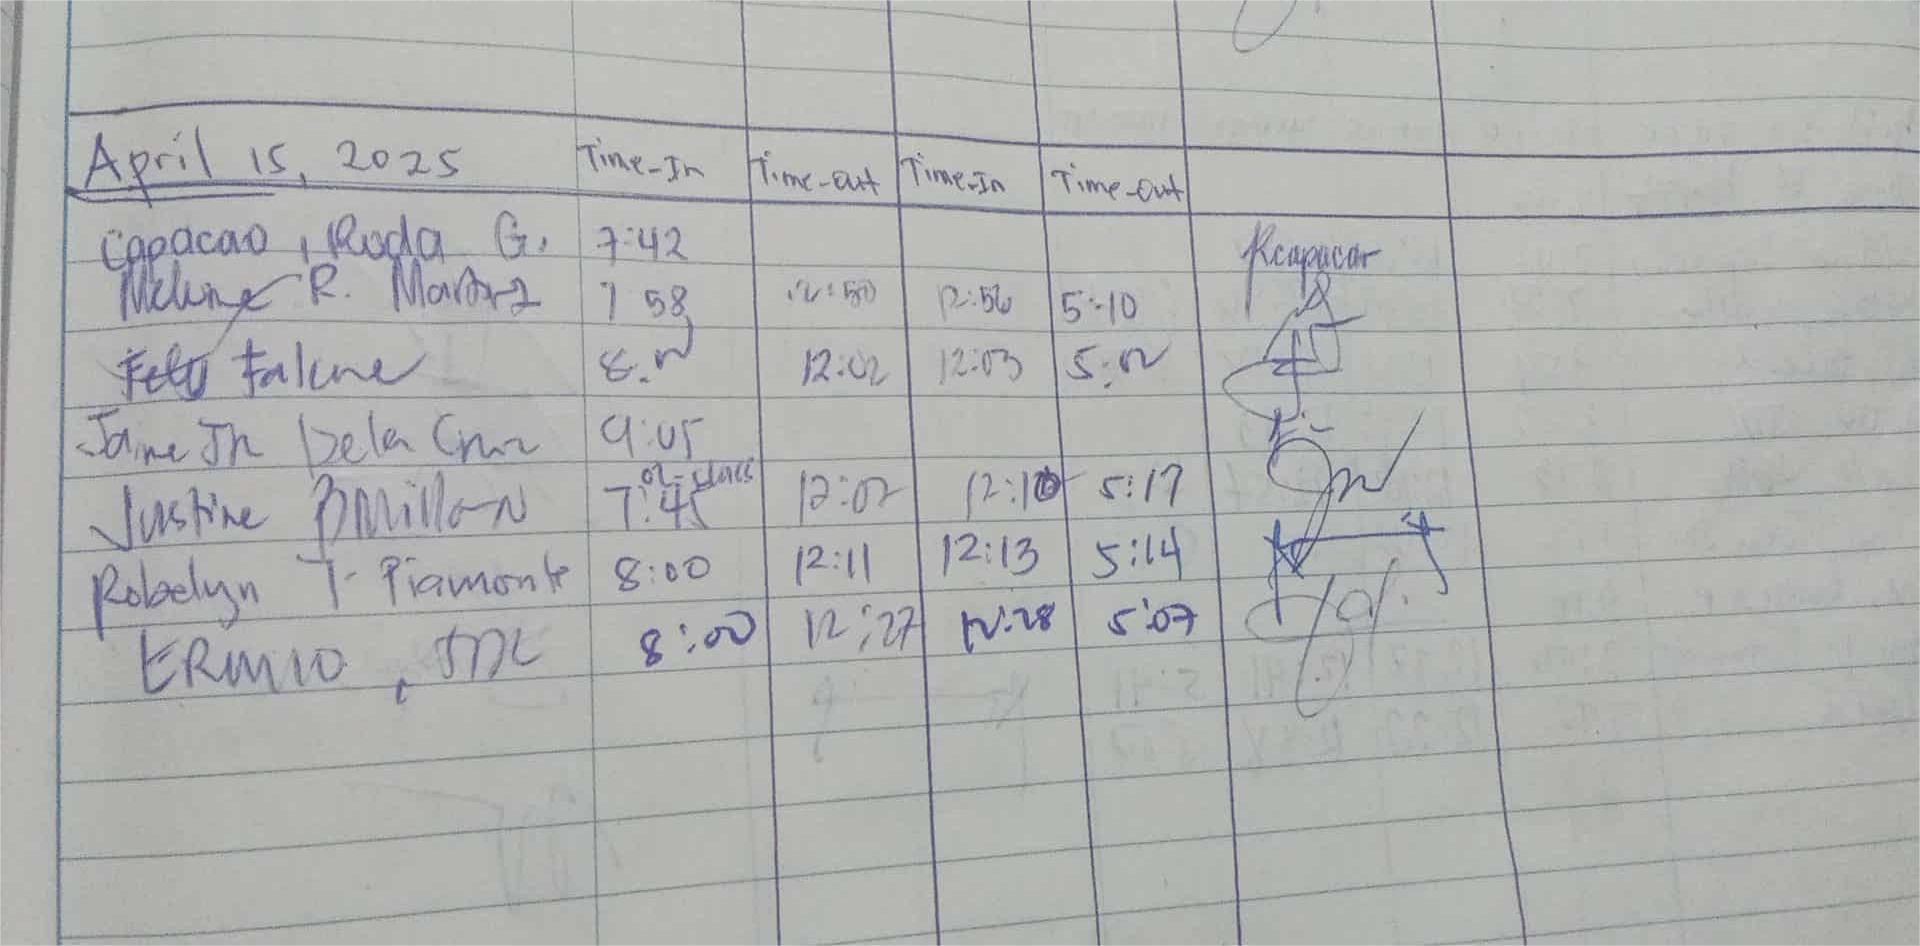 April 15, 2025 Time-In Time-out Time-In Time-out
Capacao, Roda G. 7:42 Rcapacao
R. 7 58 12:50 12:56 5:10
Falcne 8:00 12:02 12:03 5:02
Jaime Jr Dela Cruz 9:05
Justine BMillaN 7:45 12:02 12:10 5:17
Robelyn T. Piamonte 8:00 12:11 12:13 5:14
ERMIO, 8:00 12:27 12:28 5:07